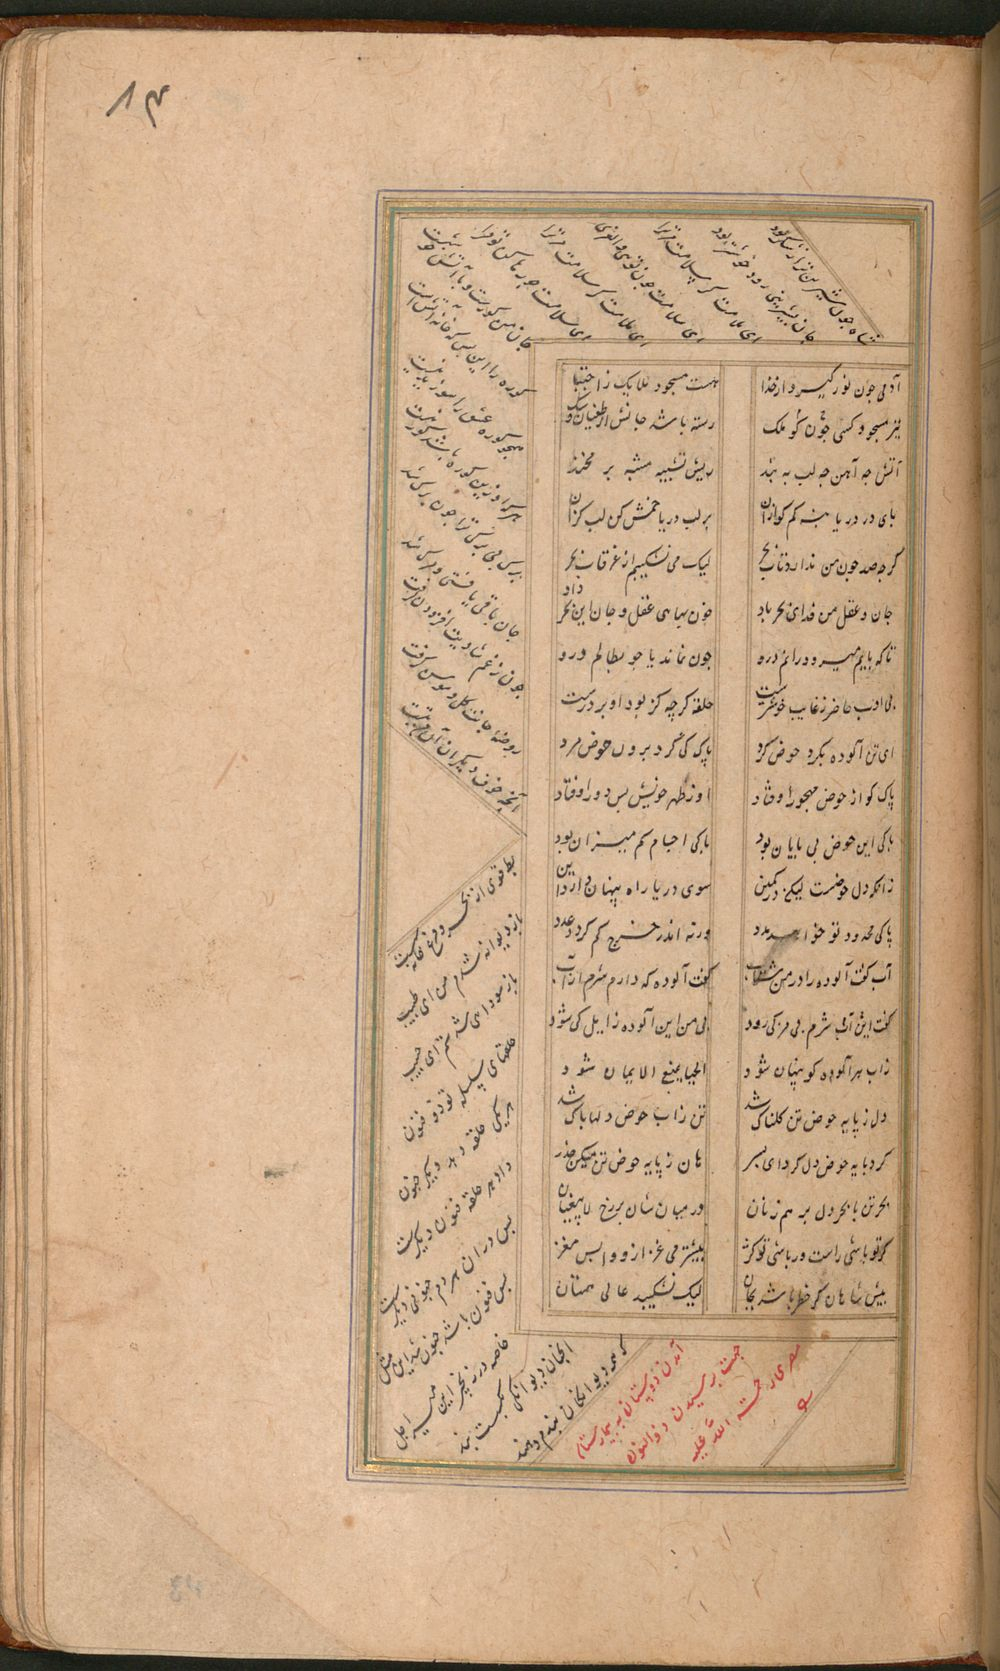 ۸۳
آدمی جون نور کیرد از خذا
هست مسجود ملایک ز اجتبا
نیز مسجود کسی جون کو ملک
رسته باشد جانش از طغیان و شک
آتش جه آهن جه لب به بند
ریش تشبیه مشبه بر مخند
بای در دریا منه کم کو ازان
بر لب دریا خمش کن لب کزان
کرجه صد جون من ندارد تاب بحر
لیک می نشکیبم از غرقاب بحر
جان و عقل من فدای بحر باد
خون بهای عقل و جان این بحر داد
تا که بایم میرود رانم درو
جون نماند با جو بطانم درو
بی ادب حاضر ز غایب خوشترست
حلقه کرجه کژ بود او بر درست
ای تن آلوده بکرد حوض کرد
پاک کی کردد برون حوض مرد
پاک کو از حوض مهجور اوفتاد
او ز طهر خویش بس دور اوفتاد
باکی این حوض بی بایان بود
باکی اجسام کم میزان بود
زانکه دل حوضست لیکن در کمین
سوی دریا راه پنهان دارد این
پاکی محدود تو خواهد مدد
ورنه اندر خرج کم کردد عدد
آب کفت آلوده را در من شتاب
کفت آلوده که دارم شرم از آب
کفت آب این شرم بی من کی رود
بی من این آلوده زایل کی شود
ز آب هر آلوده کو پنهان شود
الحیا یمنع الایمان شود
دل ز پایه حوض تن کلناک شد
تن ز آب حوض دلها باک شد
کرد بایه حوض دل کرد ای بسر
هان ز پایه حوض تن میکن حذر
بحر تن با بحر دل بر هم زنان
در میان شان برزخ لا یبغیان
کر تو باشی راست ور باشی تو کژ
بیشتر می غژ ازو و ابس مغژ
بیش شاهان کر خطر باشد بجان
لیک نشکیبد عالی همتان
شاه جون شیرین تر از شکر بود
جان بشیرینی رود خوشتر بود
ای ملامت کر سلامت مر ترا
ای سلامت جو توی واهی العری
جان من کوره ست و با آتش خوشست
کوره را این بس که خانه آتش است
همجو کوره عشق را سوزیدنیست
هر که او زین کوره باشد کوره نیست
برک بی برکی ترا جون برک شد
جان باقی یافتی و مرک شد
جون ز غم شادیت افزودن کرفت
روضه جانت کل و سوسن کرفت
آنجه خوف دیکران آن امن تست
بط قوی از بحر و مرغ خانه سست
باز دیوانه شدم من ای طبیب
باز سودایی شدم من ای حبیب
حلقهای سلسله تو ذو فنون
هر یکی حلقه دهد دیکر جنون
داد هر حلقه فنون دیکرست
بس مرا هر دم جنونی دیکرست
بس فنون باشد جنون شد این مثل
خاصه در زنجیر این میر اجل
آنجنان دیوانکی بکسست بند
که همه دیوانکان بندم دهند
آمدن دوستان به بیمارستان
جهت برسیدن ذوالنون
مصری رحمة الله علیه